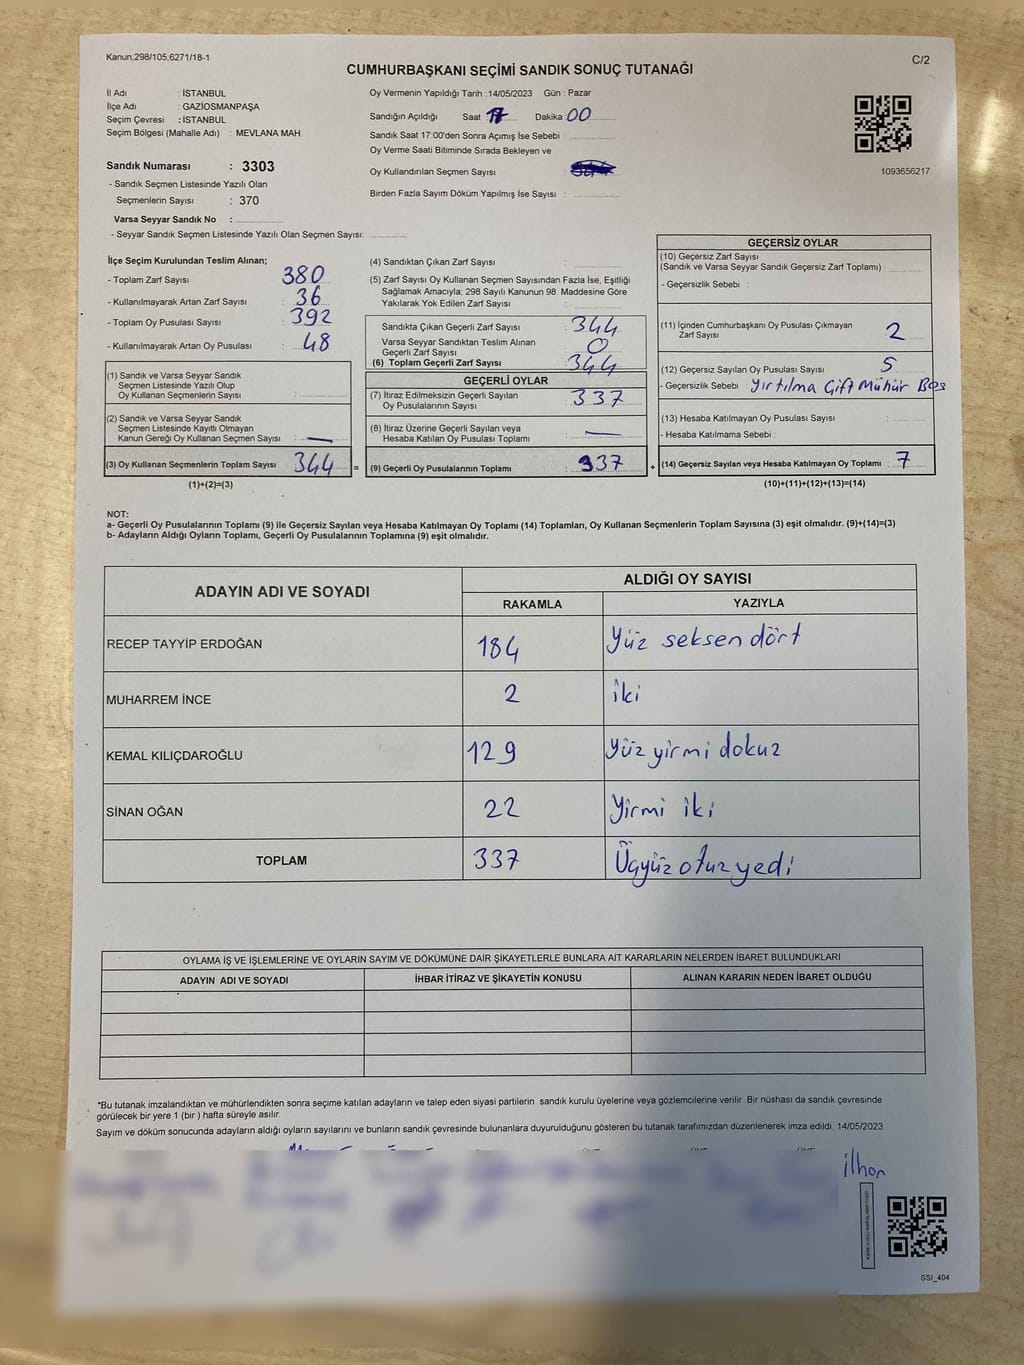 Kanun;298/105;6271/18-1
C/2
CUMHURBAŞKANI SEÇİMİ SANDIK SONUÇ TUTANAĞI
İl Adı : İSTANBUL
İlçe Adı : GAZİOSMANPAŞA
Seçim Çevresi : İSTANBUL
Seçim Bölgesi (Mahalle Adı) : MEVLANA MAH.
Sandık Numarası : 3303
- Sandık Seçmen Listesinde Yazılı Olan
Seçmenlerin Sayısı : 370
Varsa Seyyar Sandık No :
- Seyyar Sandık Seçmen Listesinde Yazılı Olan Seçmen Sayısı:
Oy Vermenin Yapıldığı Tarih :14/05/2023 Gün : Pazar
Sandığın Açıldığı Saat 17 Dakika 00
Sandık Saat 17:00'den Sonra Açımış İse Sebebi :
Oy Verme Saati Bitiminde Sırada Bekleyen ve
Oy Kullandırılan Seçmen Sayısı :
Birden Fazla Sayım Döküm Yapılmış İse Sayısı :
1093656217
İlçe Seçim Kurulundan Teslim Alınan;
- Toplam Zarf Sayısı : 380
- Kullanılmayarak Artan Zarf Sayısı : 36
- Toplam Oy Pusulası Sayısı : 392
- Kullanılmayarak Artan Oy Pusulası : 48
(1) Sandık ve Varsa Seyyar Sandık
Seçmen Listesinde Yazılı Olup
Oy Kullanan Seçmenlerin Sayısı :
(2) Sandık ve Varsa Seyyar Sandık
Seçmen Listesinde Kayıtlı Olmayan
Kanun Gereği Oy Kullanan Seçmen Sayısı : —
(3) Oy Kullanan Seçmenlerin Toplam Sayısı : 344 =
(1)+(2)=(3)
(4) Sandıktan Çıkan Zarf Sayısı :
(5) Zarf Sayısı Oy Kullanan Seçmen Sayısından Fazla İse, Eşitliği
Sağlamak Amacıyla; 298 Sayılı Kanunun 98. Maddesine Göre
Yakılarak Yok Edilen Zarf Sayısı :
Sandıkta Çıkan Geçerli Zarf Sayısı : 344
Varsa Seyyar Sandıktan Teslim Alınan
Geçerli Zarf Sayısı : 0
(6) Toplam Geçerli Zarf Sayısı : 344
GEÇERLİ OYLAR
(7) İtiraz Edilmeksizin Geçerli Sayılan
Oy Pusulalarının Sayısı : 337
(8) İtiraz Üzerine Geçerli Sayılan veya
Hesaba Katılan Oy Pusulası Toplamı : —
(9) Geçerli Oy Pusulalarının Toplamı : 337 +
GEÇERSİZ OYLAR
(10) Geçersiz Zarf Sayısı
(Sandık ve Varsa Seyyar Sandık Geçersiz Zarf Toplamı) :
- Geçersizlik Sebebi :
(11) İçinden Cumhurbaşkanı Oy Pusulası Çıkmayan
Zarf Sayısı : 2
(12) Geçersiz Sayılan Oy Pusulası Sayısı : 5
- Geçersizlik Sebebi : Yırtılma Çift Mühür Boş
(13) Hesaba Katılmayan Oy Pusulası Sayısı :
- Hesaba Katılmama Sebebi :
(14) Geçersiz Sayılan veya Hesaba Katılmayan Oy Toplamı : 7
(10)+(11)+(12)+(13)=(14)
NOT:
a- Geçerli Oy Pusulalarının Toplamı (9) ile Geçersiz Sayılan veya Hesaba Katılmayan Oy Toplamı (14) Toplamları, Oy Kullanan Seçmenlerin Toplam Sayısına (3) eşit olmalıdır. (9)+(14)=(3)
b- Adayların Aldığı Oyların Toplamı, Geçerli Oy Pusulalarının Toplamına (9) eşit olmalıdır.
ADAYIN ADI VE SOYADI ALDIĞI OY SAYISI
RAKAMLA YAZIYLA
RECEP TAYYİP ERDOĞAN 184 Yüz seksen dört
MUHARREM İNCE 2 iki
KEMAL KILIÇDAROĞLU 129 Yüz yirmi dokuz
SİNAN OĞAN 22 Yirmi iki
TOPLAM 337 Üçyüz otuz yedi
OYLAMA İŞ VE İŞLEMLERİNE VE OYLARIN SAYIM VE DÖKÜMÜNE DAİR ŞİKAYETLERLE BUNLARA AİT KARARLARIN NELERDEN İBARET BULUNDUKLARI
ADAYIN ADI VE SOYADI İHBAR İTİRAZ VE ŞİKAYETİN KONUSU ALINAN KARARIN NEDEN İBARET OLDUĞU
*Bu tutanak imzalandıktan ve mühürlendikten sonra seçime katılan adayların ve talep eden siyasi partilerin sandık kurulu üyelerine veya gözlemcilerine verilir. Bir nüshası da sandık çevresinde
görülecek bir yere 1 (bir ) hafta süreyle asılır.
Sayım ve döküm sonucunda adayların aldığı oyların sayılarını ve bunların sandık çevresinde bulunanlara duyurulduğunu gösteren bu tutanak tarafımızdan düzenlenerek imza edildi. 14/05/2023
ilhan
SSI_404